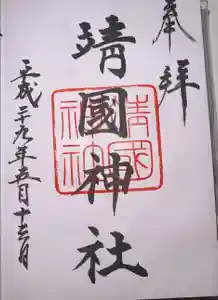 奉拝
靖國神社
靖國
神社
平成二十九年五月十三日